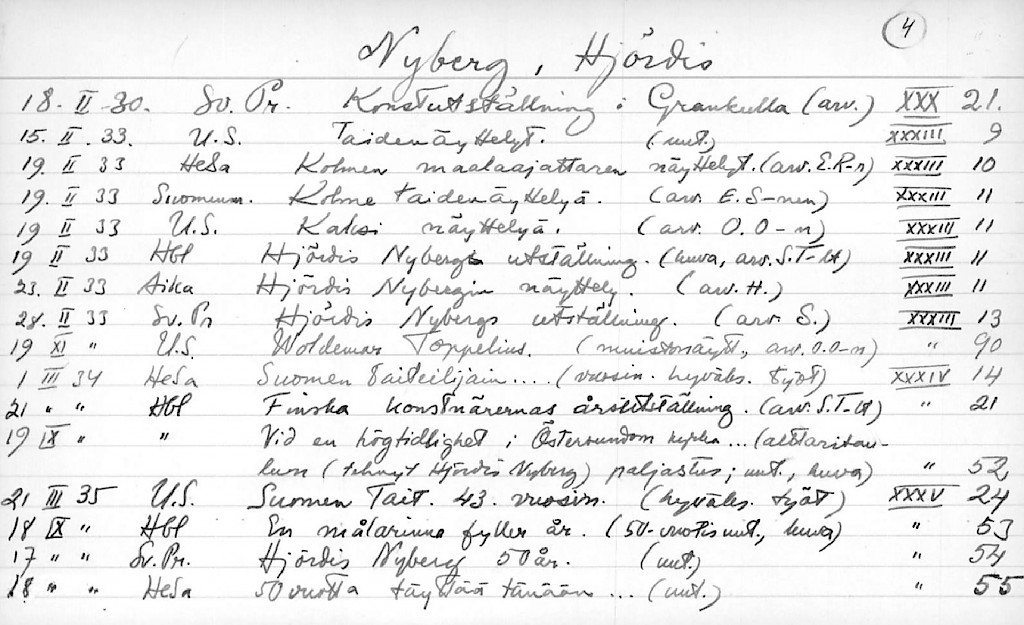 4
Nyberg, Hjördis
18. II -30. Sv. Pr. Konstutställning i Grankulla (arv.) XXX 21.
15. II. 33. U.S. Taidenäyttelyt. (uut.) XXXIII 9
19. II 33 HeSa Kolmen maalaajattaren näyttelyt. (arv. E.R-n) XXXIII 10
19. II 33 Suomenm. Kolme taidenäyttelyä. (arv. E.S-nen) XXXIII 11
19 II 33 U.S. Kaksi näyttelyä. (arv. O.O-n) XXXIII 11
19 II 33 Hbl Hjördis Nybergs utställning. (kuva, arv. S.T-lt) XXXIII 11
23. II 33 Aika Hjördis Nybergin näyttely. (arv. H.) XXXIII 11
28. II 33 Sv. Pr Hjördis Nybergs utställning. (arv. S.) XXXIII 13
19 XI " U.S. Woldemar Toppelius. (muistonäytt., arv. O.O-n) " 90
1 III 34 HeSa Suomen Taiteilijain .... (vuosin. hyväks. työt) XXXIV 14
21 " " Hbl Finska konstnärernas årsutställning. (arv. S.T-lt) " 21
19 IX " " Vid en högtidlighet i Östersundom kyrka ... (alttaritau-
lun (tehnyt Hjördis Nyberg) paljastus; uut., kuva) " 52
21 III 35 U.S. Suomen Tait. 43. vuosin. (hyväks. työt) XXXV 24
18 IX " Hbl En målarinna fyller år. (50-vuotis uut., kuva) " 53
17 " " Sv. Pr. Hjördis Nyberg 50 år. (uut.) " 54
18 " " HeSa 50 vuotta täyttää tänään ... (uut.) " 55